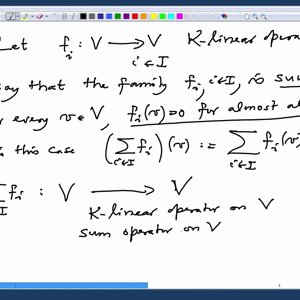 Let f_i : V ⟶ V K-linear opera
i∈I
say that the family f_i, i∈I, is sum
r every v∈V, f_i(v)=0 for almost al
n this case (∑_{i∈I} f_i)(v) := ∑_{i∈I} f_i(v)
∑f_i : V ⟶ V
K-linear operator on V
sum operator on V